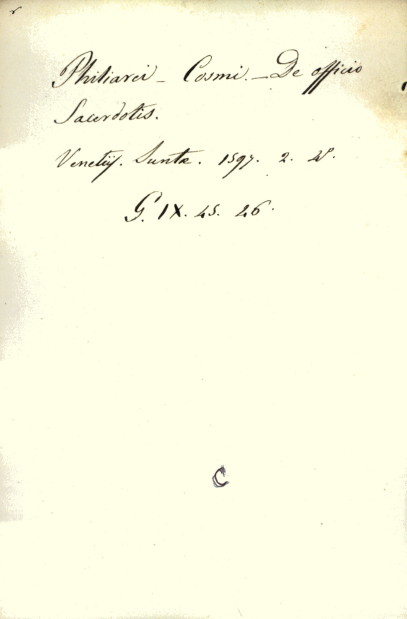 Philiarci - Cosmi. - De officio
Sacerdotis.
Venetijs. Juntæ. 1597. 2. 4°.
G. IX. 45. 26.
C